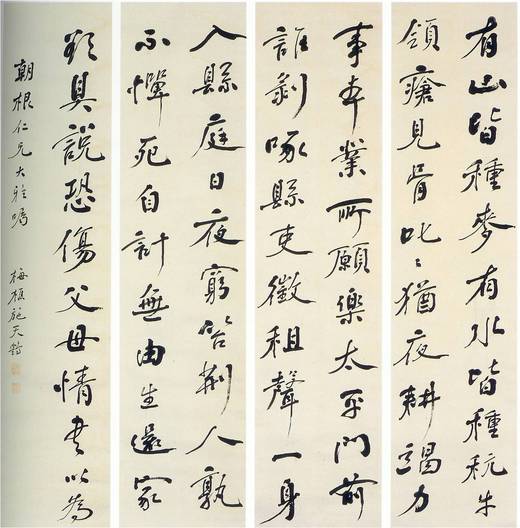 有山皆種麥有水皆種秔牛
領瘡見骨叱〻猶夜耕竭力
事本業所願樂太平門前
誰剝啄縣吏徵租聲一身
入縣庭日夜窮笞荆人孰
不憚死自計無由生還家
欲具說恐傷父母情書以為
朝根仁兄大雅囑